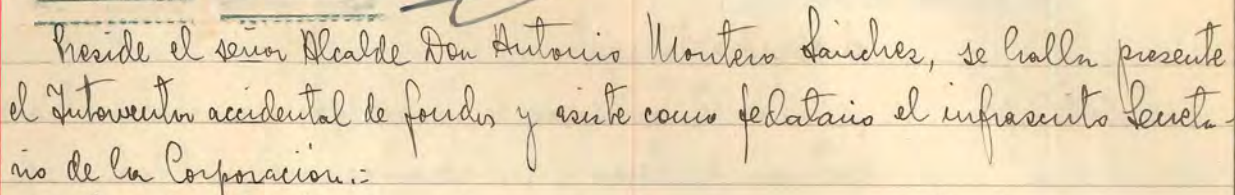 Preside el señor Alcalde Don Antonio Montero Sánchez, se halla presente
el Interventor accidental de fondos y asiste como fedatario el infrascrito Secreta-
rio de la Corporación.=